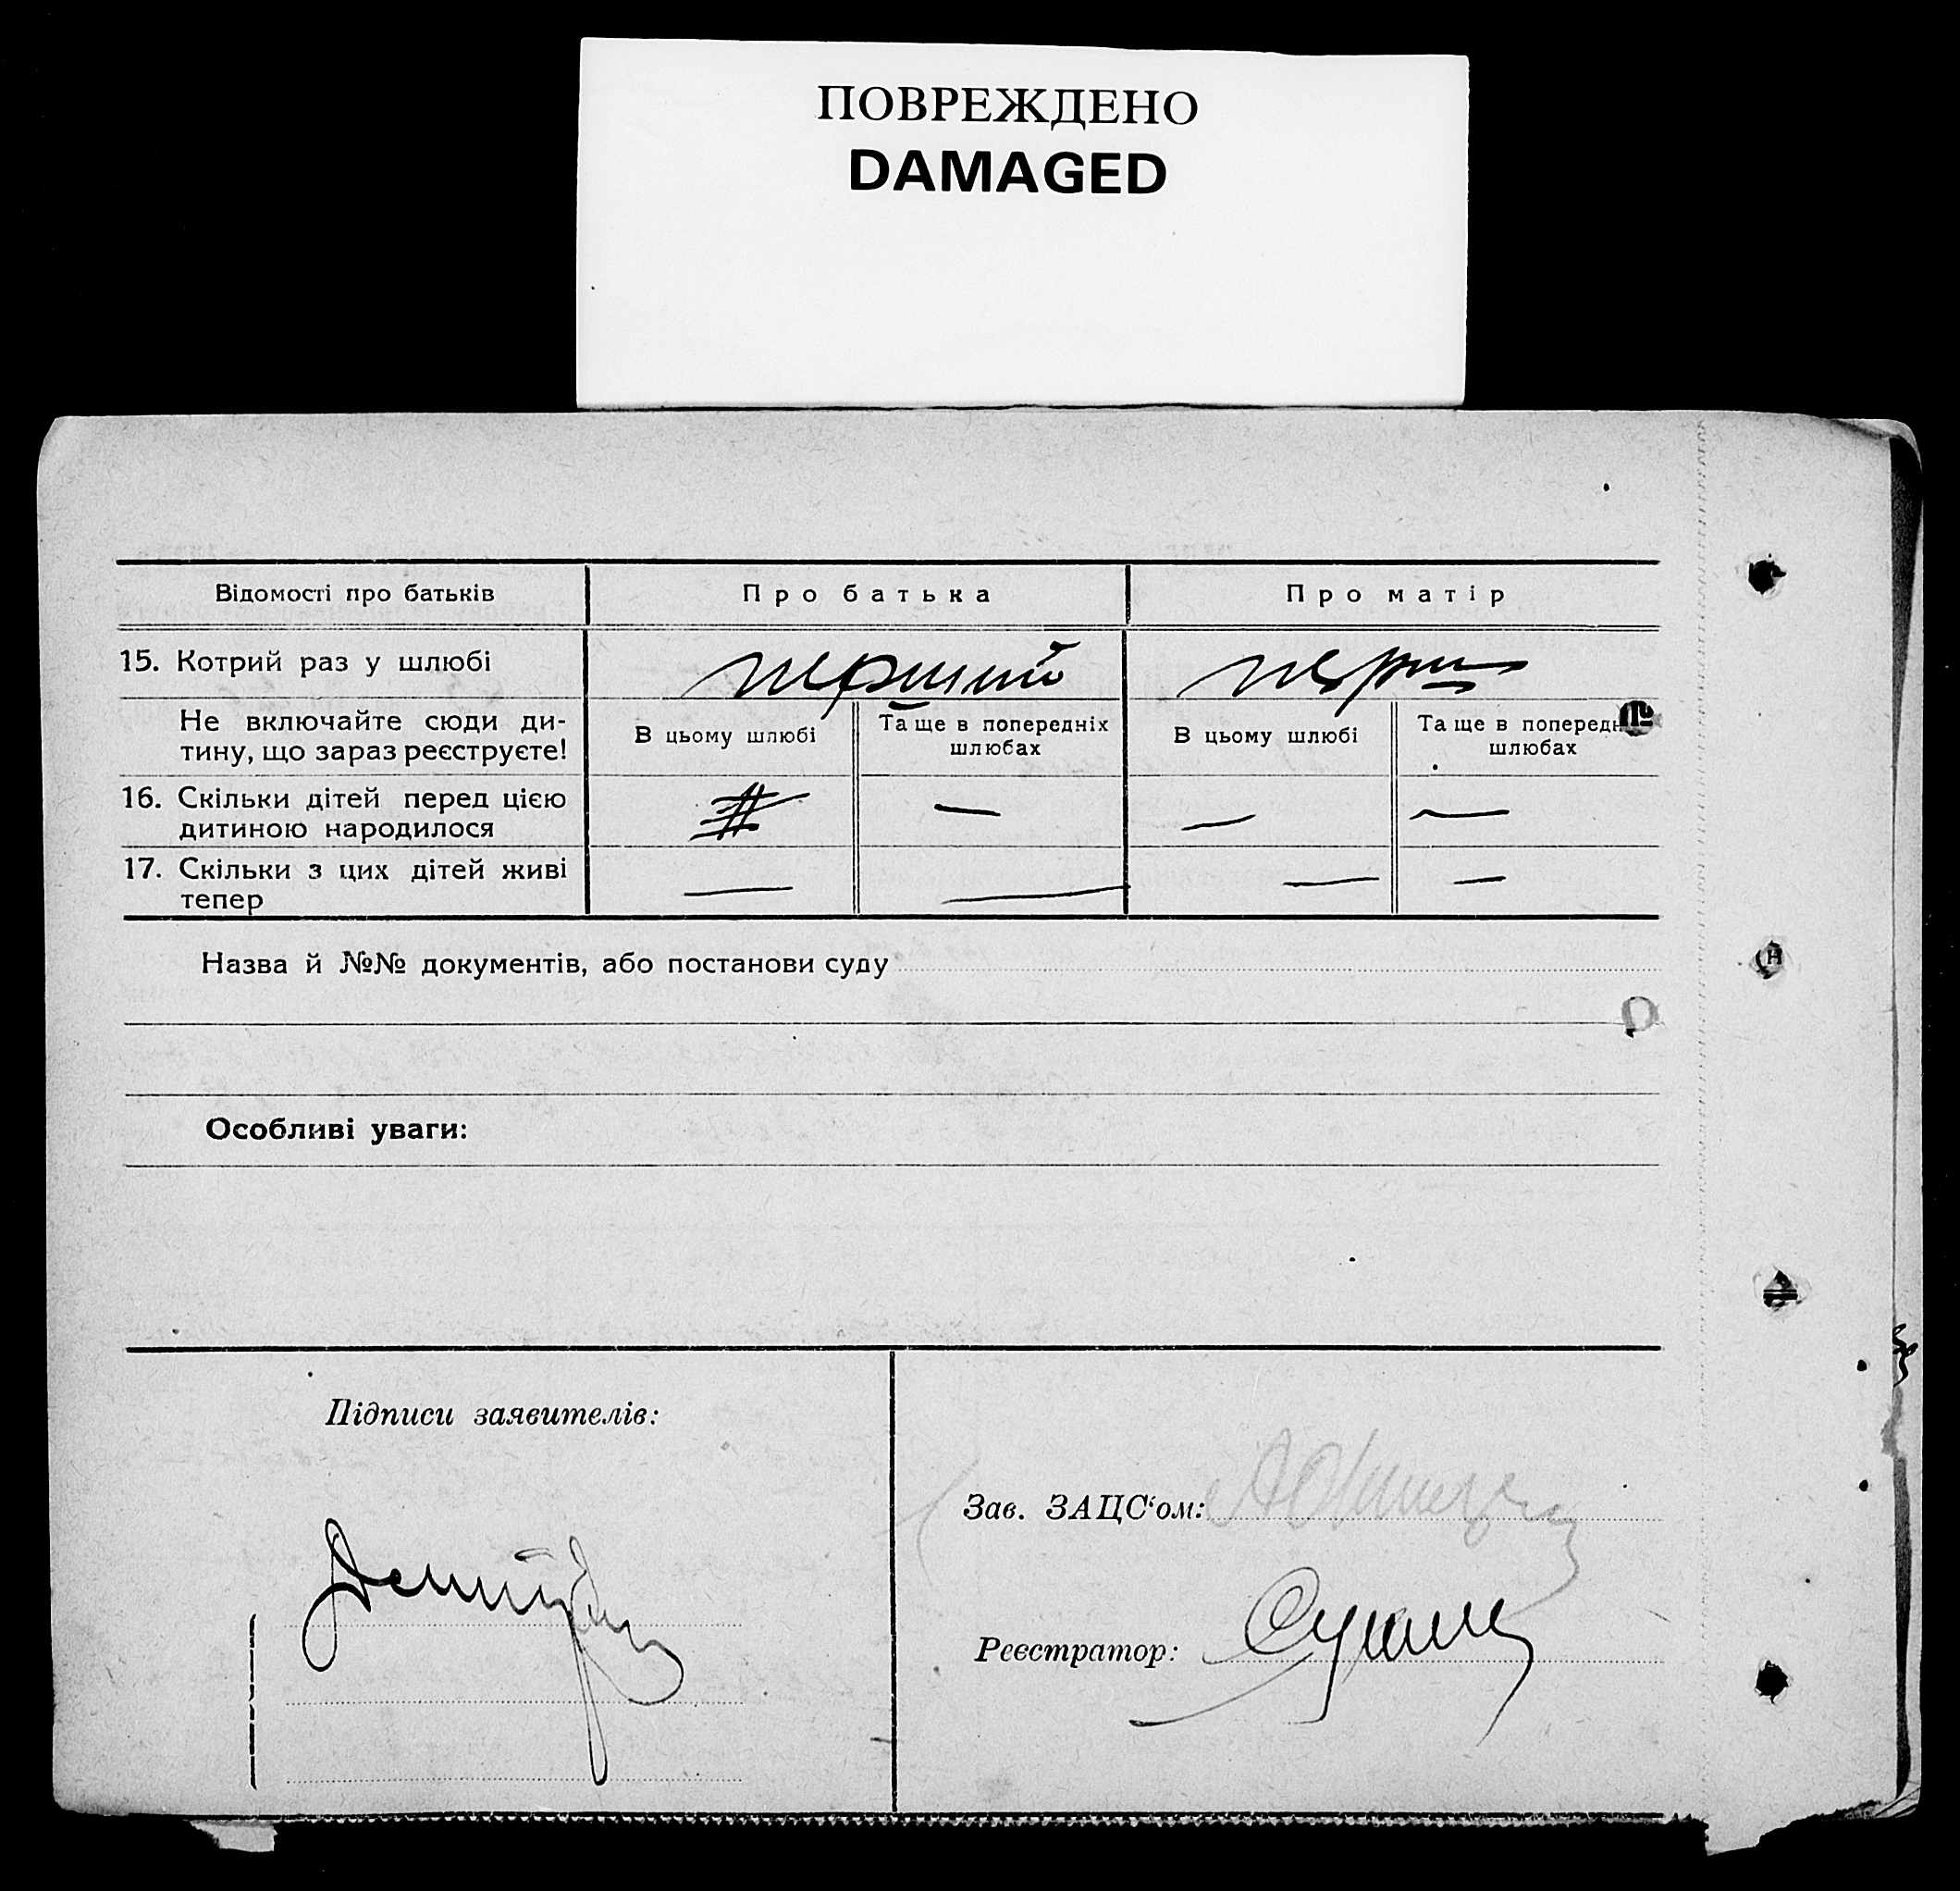 ПОВРЕЖДЕНО
DAMAGED
Відомості про батьків
Про батька
Про матір
15. Котрий раз у шлюбі
перший
перш
Не включайте сюди ди-
тину, що зараз реєструєте!
В цьому шлюбі
Та ще в попередніх
шлюбах
В цьому шлюбі
Та ще в поперед
шлюбах
16. Скільки дітей перед цією
дитиною народилося
— — —
17. Скільки з цих дітей живі
тепер
— — — —
Назва й №№ документів, або постанови суду
Особливі уваги:
Підписи заявителів:
Зав. ЗАЦС‘ом:
Реєстратор: